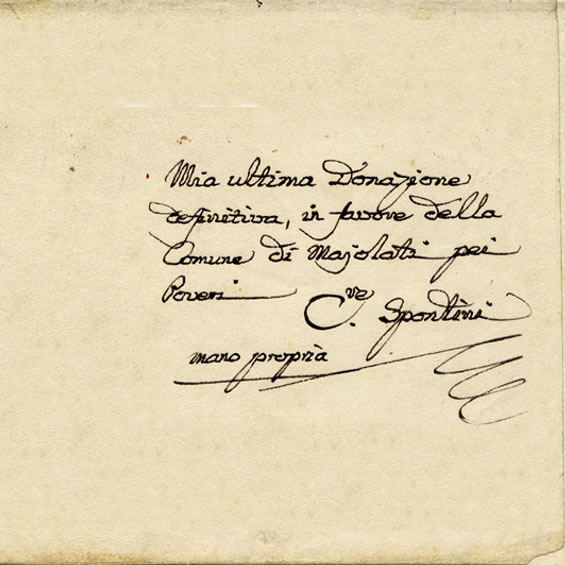 Mia ultima Donazione
definitiva, in favore della
Comune di Majolati pei
Poveri
C.ve Spontini
mano proprià